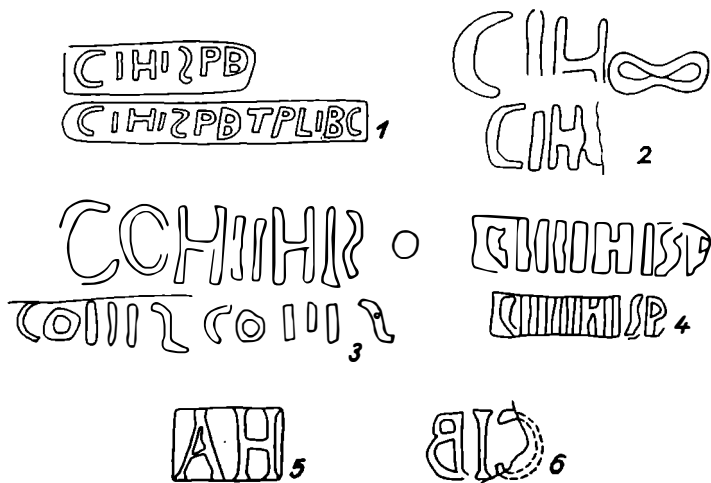 CIHISPB
CIHISPBTPLIBC
1
CIH
CIH
2
COHIIHIS
COIIIS COIIIS
3
CIIIIHISP
4
AH
5
BIC
6